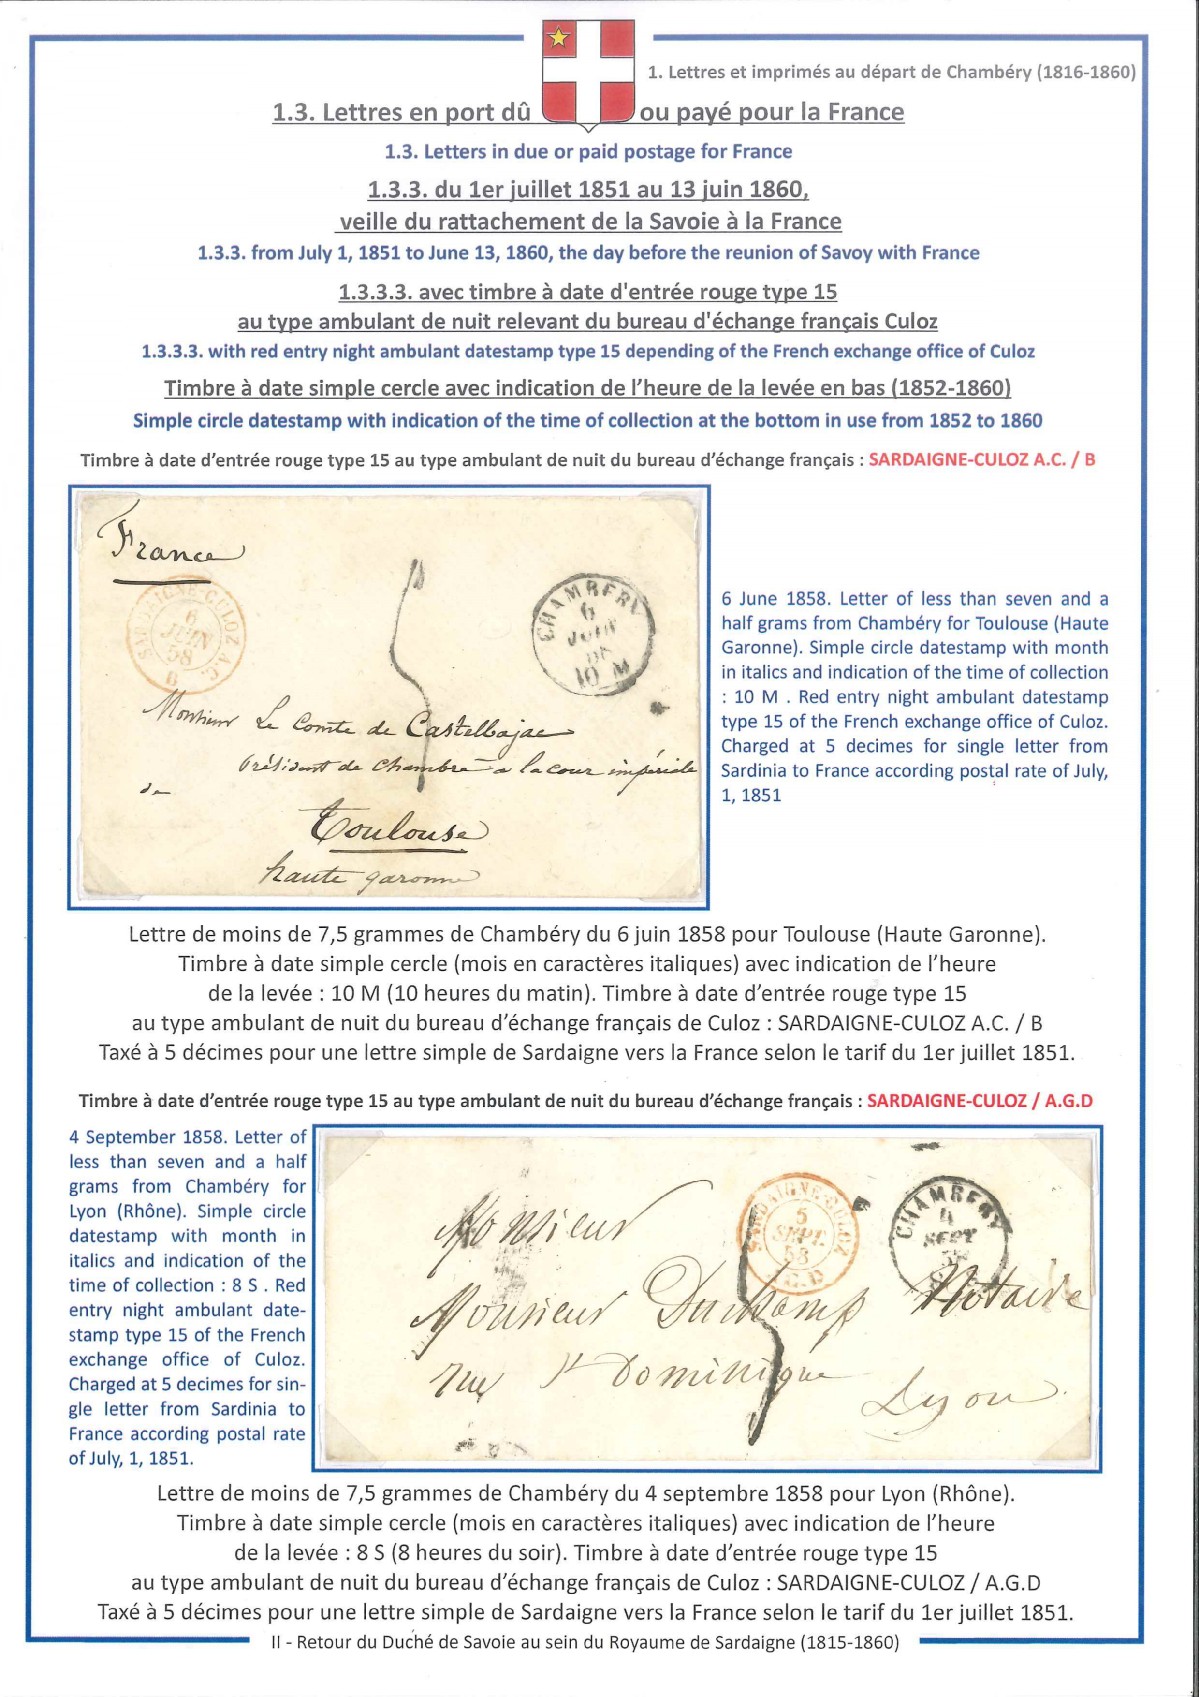 1. Lettres et imprimés au départ de Chambéry (1816-1860)
1.3. Lettres en port dû ou payé pour la France
1.3. Letters in due or paid postage for France
1.3.3. du 1er juillet 1851 au 13 juin 1860,
veille du rattachement de la Savoie à la France
1.3.3. from July 1, 1851 to June 13, 1860, the day before the reunion of Savoy with France
1.3.3.3. avec timbre à date d'entrée rouge type 15
au type ambulant de nuit relevant du bureau d'échange français Culoz
1.3.3.3. with red entry night ambulant datestamp type 15 depending of the French exchange office of Culoz
Timbre à date simple cercle avec indication de l'heure de la levée en bas (1852-1860)
Simple circle datestamp with indication of the time of collection at the bottom in use from 1852 to 1860
Timbre à date d'entrée rouge type 15 au type ambulant de nuit du bureau d'échange français : SARDAIGNE-CULOZ A.C. / B
France
SARDAIGNE-CULOZ A.C.
6
JUIN
58
B
CHAMBERY
6
JUIN
10 M
5
Monsieur Le Comte de Castelbajac
Président de chambre à la cour impériale
de
Toulouse
haute garonne
6 June 1858. Letter of less than seven and a
half grams from Chambéry for Toulouse (Haute
Garonne). Simple circle datestamp with month
in italics and indication of the time of collection
: 10 M . Red entry night ambulant datestamp
type 15 of the French exchange office of Culoz.
Charged at 5 decimes for single letter from
Sardinia to France according postal rate of July,
1, 1851
Lettre de moins de 7,5 grammes de Chambéry du 6 juin 1858 pour Toulouse (Haute Garonne).
Timbre à date simple cercle (mois en caractères italiques) avec indication de l'heure
de la levée : 10 M (10 heures du matin). Timbre à date d'entrée rouge type 15
au type ambulant de nuit du bureau d'échange français de Culoz : SARDAIGNE-CULOZ A.C. / B
Taxé à 5 décimes pour une lettre simple de Sardaigne vers la France selon le tarif du 1er juillet 1851.
Timbre à date d'entrée rouge type 15 au type ambulant de nuit du bureau d'échange français : SARDAIGNE-CULOZ / A.G.D
4 September 1858. Letter of
less than seven and a half
grams from Chambéry for
Lyon (Rhône). Simple circle
datestamp with month in
italics and indication of the
time of collection : 8 S . Red
entry night ambulant date-
stamp type 15 of the French
exchange office of Culoz.
Charged at 5 decimes for sin-
gle letter from Sardinia to
France according postal rate
of July, 1, 1851.
SARDAIGNE-CULOZ
5
SEPT.
58
.G.D
CHAMBERY
4
SEPT
58
5
Monsieur
Monsieur Duchamp Notaire
rue St Dominique
Lyon
Lettre de moins de 7,5 grammes de Chambéry du 4 septembre 1858 pour Lyon (Rhône).
Timbre à date simple cercle (mois en caractères italiques) avec indication de l'heure
de la levée : 8 S (8 heures du soir). Timbre à date d'entrée rouge type 15
au type ambulant de nuit du bureau d'échange français de Culoz : SARDAIGNE-CULOZ / A.G.D
Taxé à 5 décimes pour une lettre simple de Sardaigne vers la France selon le tarif du 1er juillet 1851.
II - Retour du Duché de Savoie au sein du Royaume de Sardaigne (1815-1860)